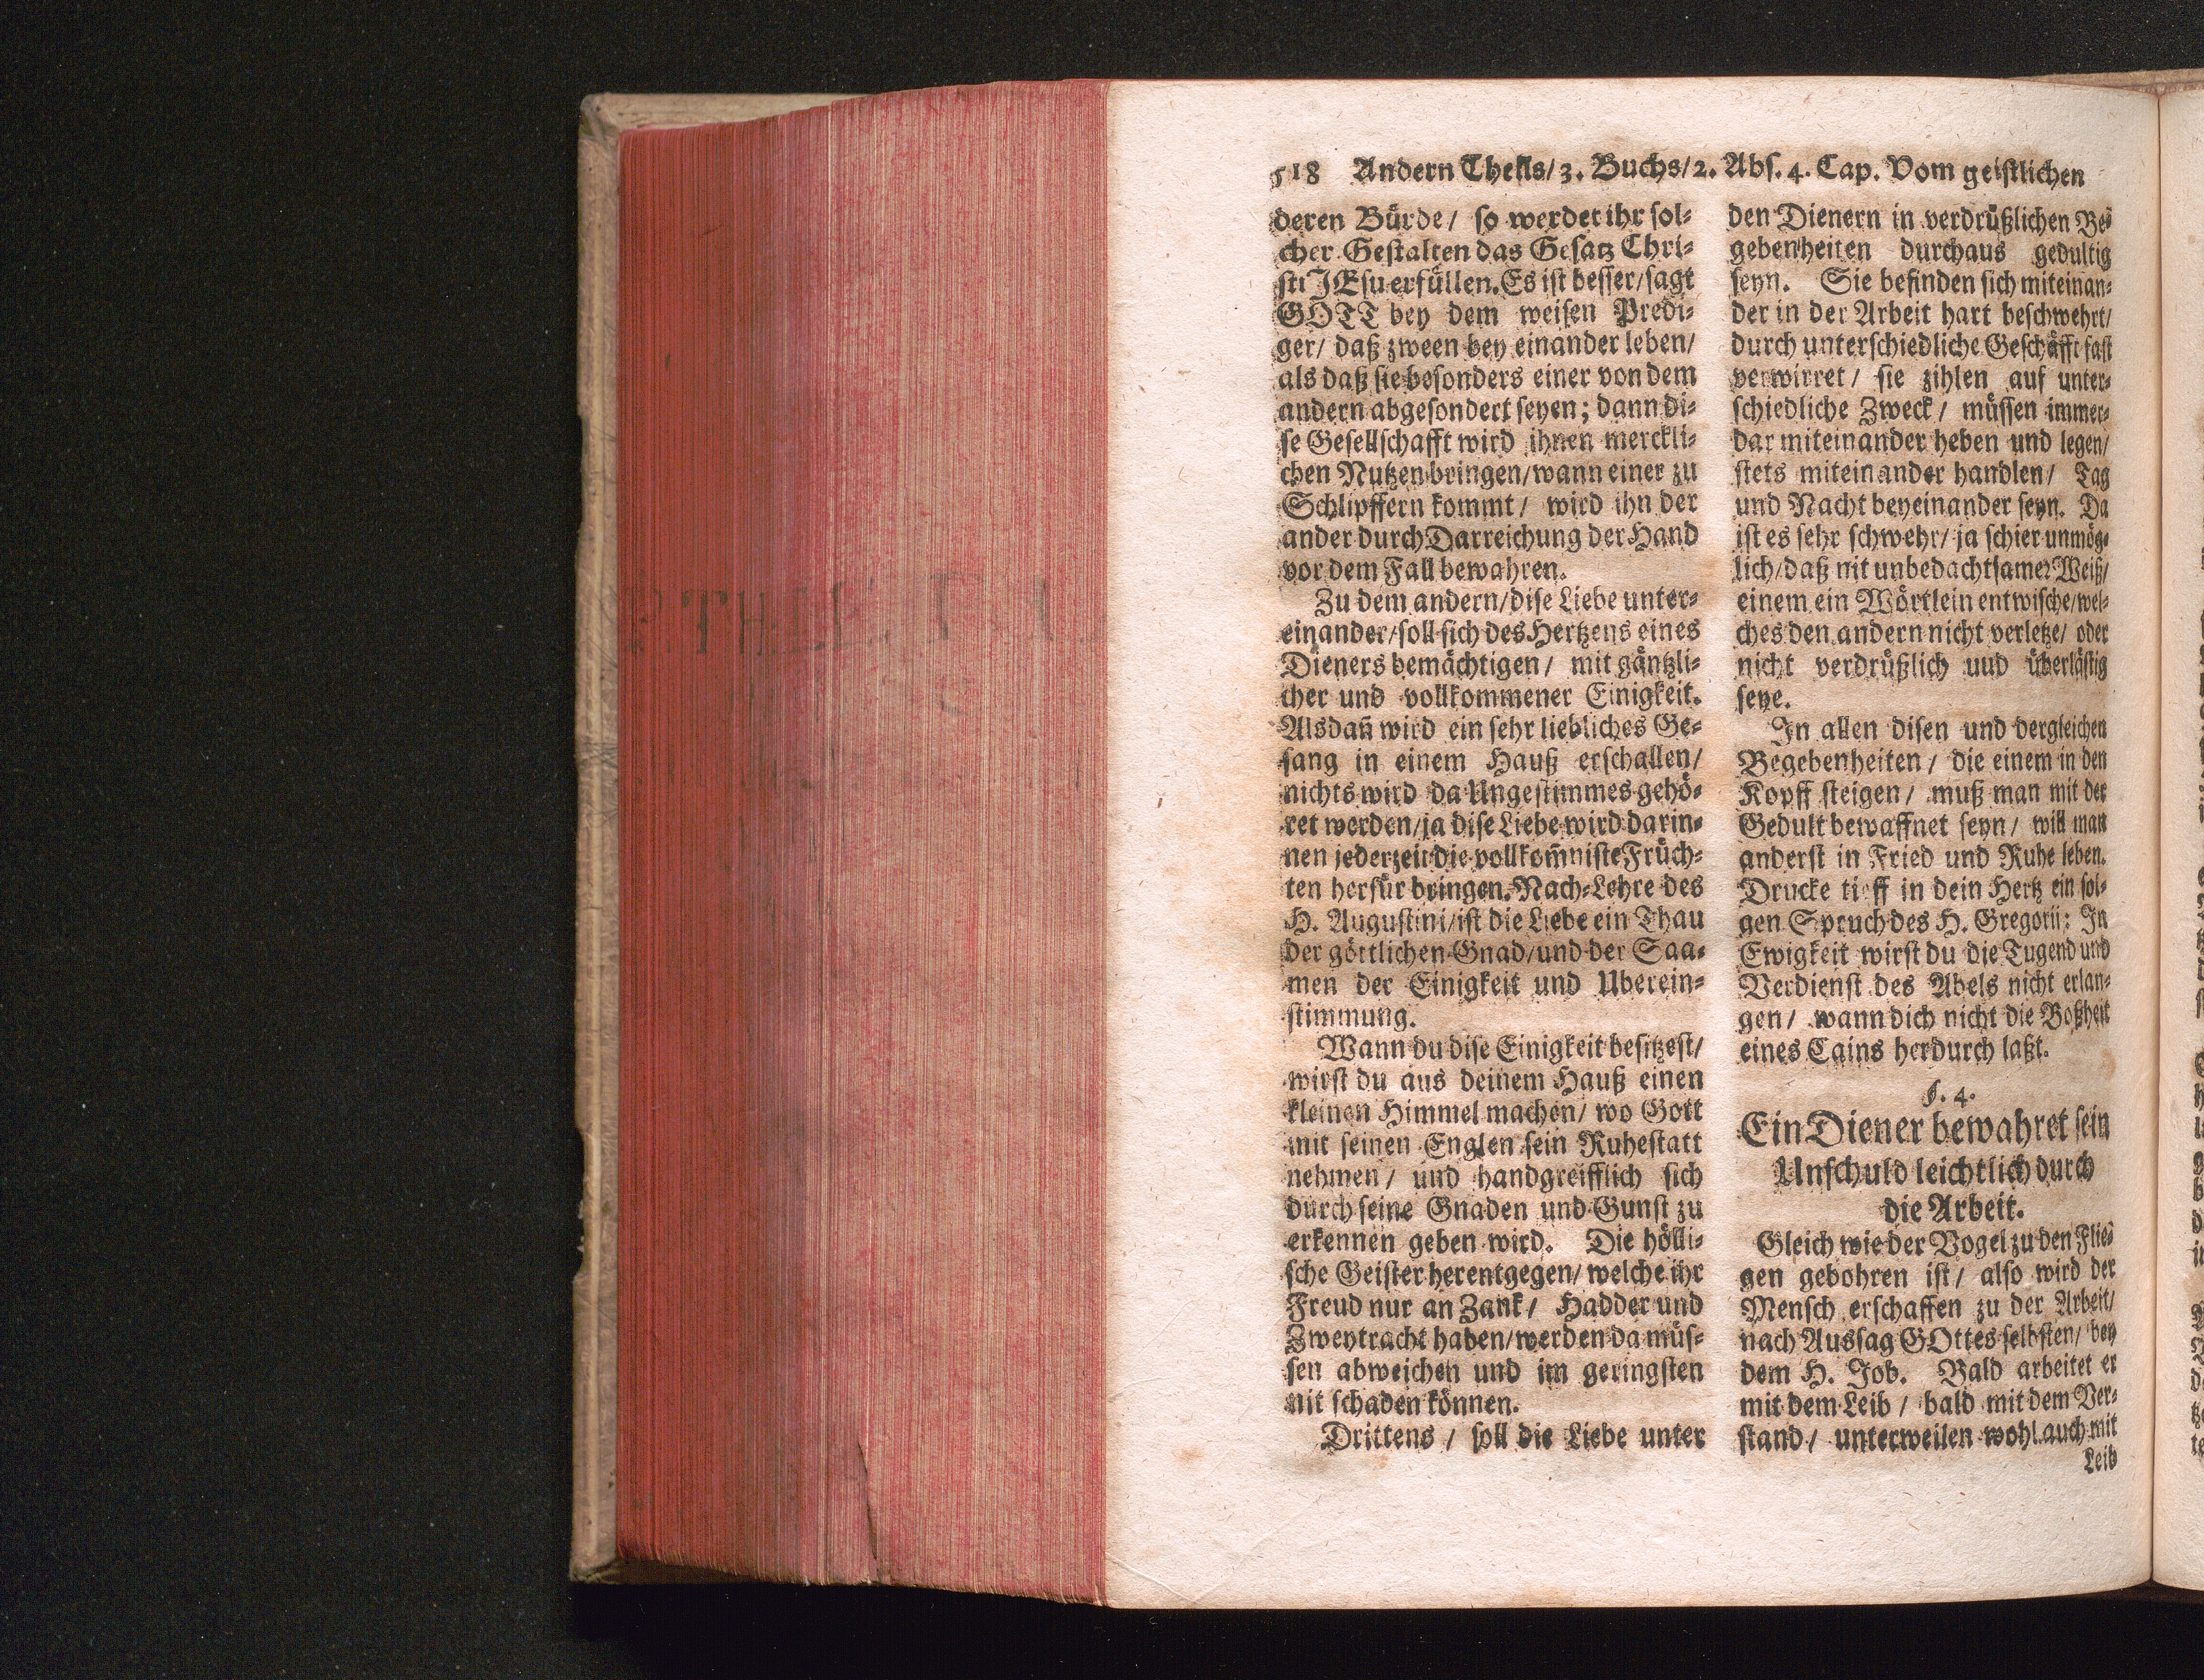 518 Andern Theils/3. Buchs/2. Abs. 4. Cap. Vom geistlichen
deren Bürde/ so werdet ihr sol-
cher Gestalten das Gesatz Chri-
sti JEsu erfüllen. Es ist besser/sagt
GOTT bey dem weisen Predi-
ger/ daß zween bey einander leben/
als daß sie besonders einer von dem
andern abgesondert seyen; dann di-
se Gesellschafft wird ihnen merckli-
chen Nutzen bringen/wann einer zu
Schlipffern kommt/ wird ihn der
ander durch Darreichung der Hand
vor dem Fall bewahren.
Zu dem andern/dise Liebe unter-
einander/soll sich des Hertzens eines
Dieners bemächtigen/ mit gäntzli-
cher und vollkommener Einigkeit.
Alsdañ wird ein sehr liebliches Ge-
sang in einem Hauß erschallen/
nichts wird da Ungestimmes gehö-
ret werden/ja dise Liebe wird darin-
nen jederzeit die vollkom̃niste Früch-
ten herfür bringen. Nach-Lehre des
H. Augustini/ist die Liebe ein Thau
der göttlichen Gnad/und der Saa-
men der Einigkeit und Uberein-
stimmung.
Wann du dise Einigkeit besitzest/
wirst du aus deinem Hauß einen
kleinen Himmel machen/ wo Gott
mit seinen Englen sein Ruhestatt
nehmen/ und handgreifflich sich
durch seine Gnaden und Gunst zu
erkennen geben wird. Die hölli-
sche Geister herentgegen/ welche ihr
Freud nur an Zank/ Hadder und
Zweytracht haben/werden da müs-
sen abweichen und im geringsten
nit schaden können.
Drittens/ soll die Liebe unter
den Dienern in verdrüßlichen Be-
gebenheiten durchaus gedultig
seyn. Sie befinden sich miteinan-
der in der Arbeit hart beschwehrt/
durch unterschiedliche Geschäfft fast
verwirret/ sie zihlen auf unter-
schiedliche Zweck/ müssen immer-
dar miteinander heben und legen/
stets miteinander handlen/ Tag
und Nacht beyeinander seyn. Da
ist es sehr schwehr/ ja schier unmög-
lich/daß nit unbedachtsamer Weiß/
einem ein Wörtlein entwische/wel-
ches den andern nicht verletze/ oder
nicht verdrüßlich uud überlästig
seye.
In allen disen und dergleichen
Begebenheiten/ die einem in den
Kopff steigen/ muß man mit der
Gedult bewaffnet seyn/ will man
anderst in Fried und Ruhe leben.
Drucke tieff in dein Hertz ein fol-
gen Spruch des H. Gregorii: In
Ewigkeit wirst du die Tugend und
Verdienst des Abels nicht erlan-
gen/ wann dich nicht die Boßheit
eines Cains herdurch laßt.
§. 4.
Ein Diener bewahret sein
Unschuld leichtlich durch
die Arbeit.
Gleich wie der Vogel zu den Flie-
gen gebohren ist/ also wird der
Mensch erschaffen zu der Arbeit/
nach Aussag GOttes selbsten/ bey
dem H. Job. Bald arbeitet er
mit dem Leib/ bald mit dem Ver-
stand/ unterweilen wohl auch mit
Leib